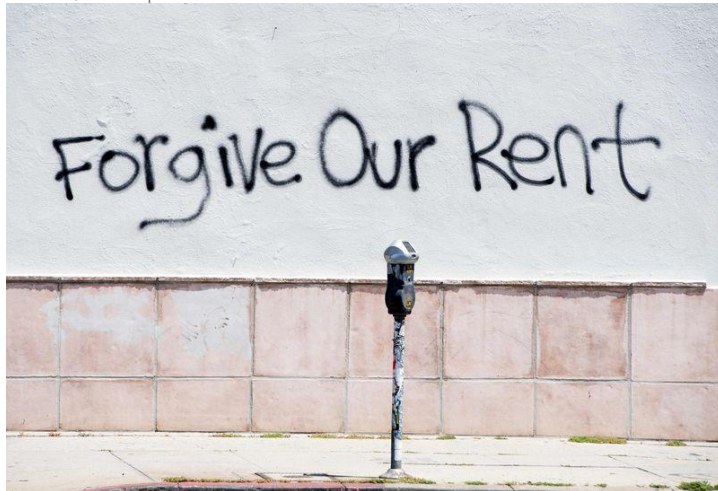 Forgive Our Rent